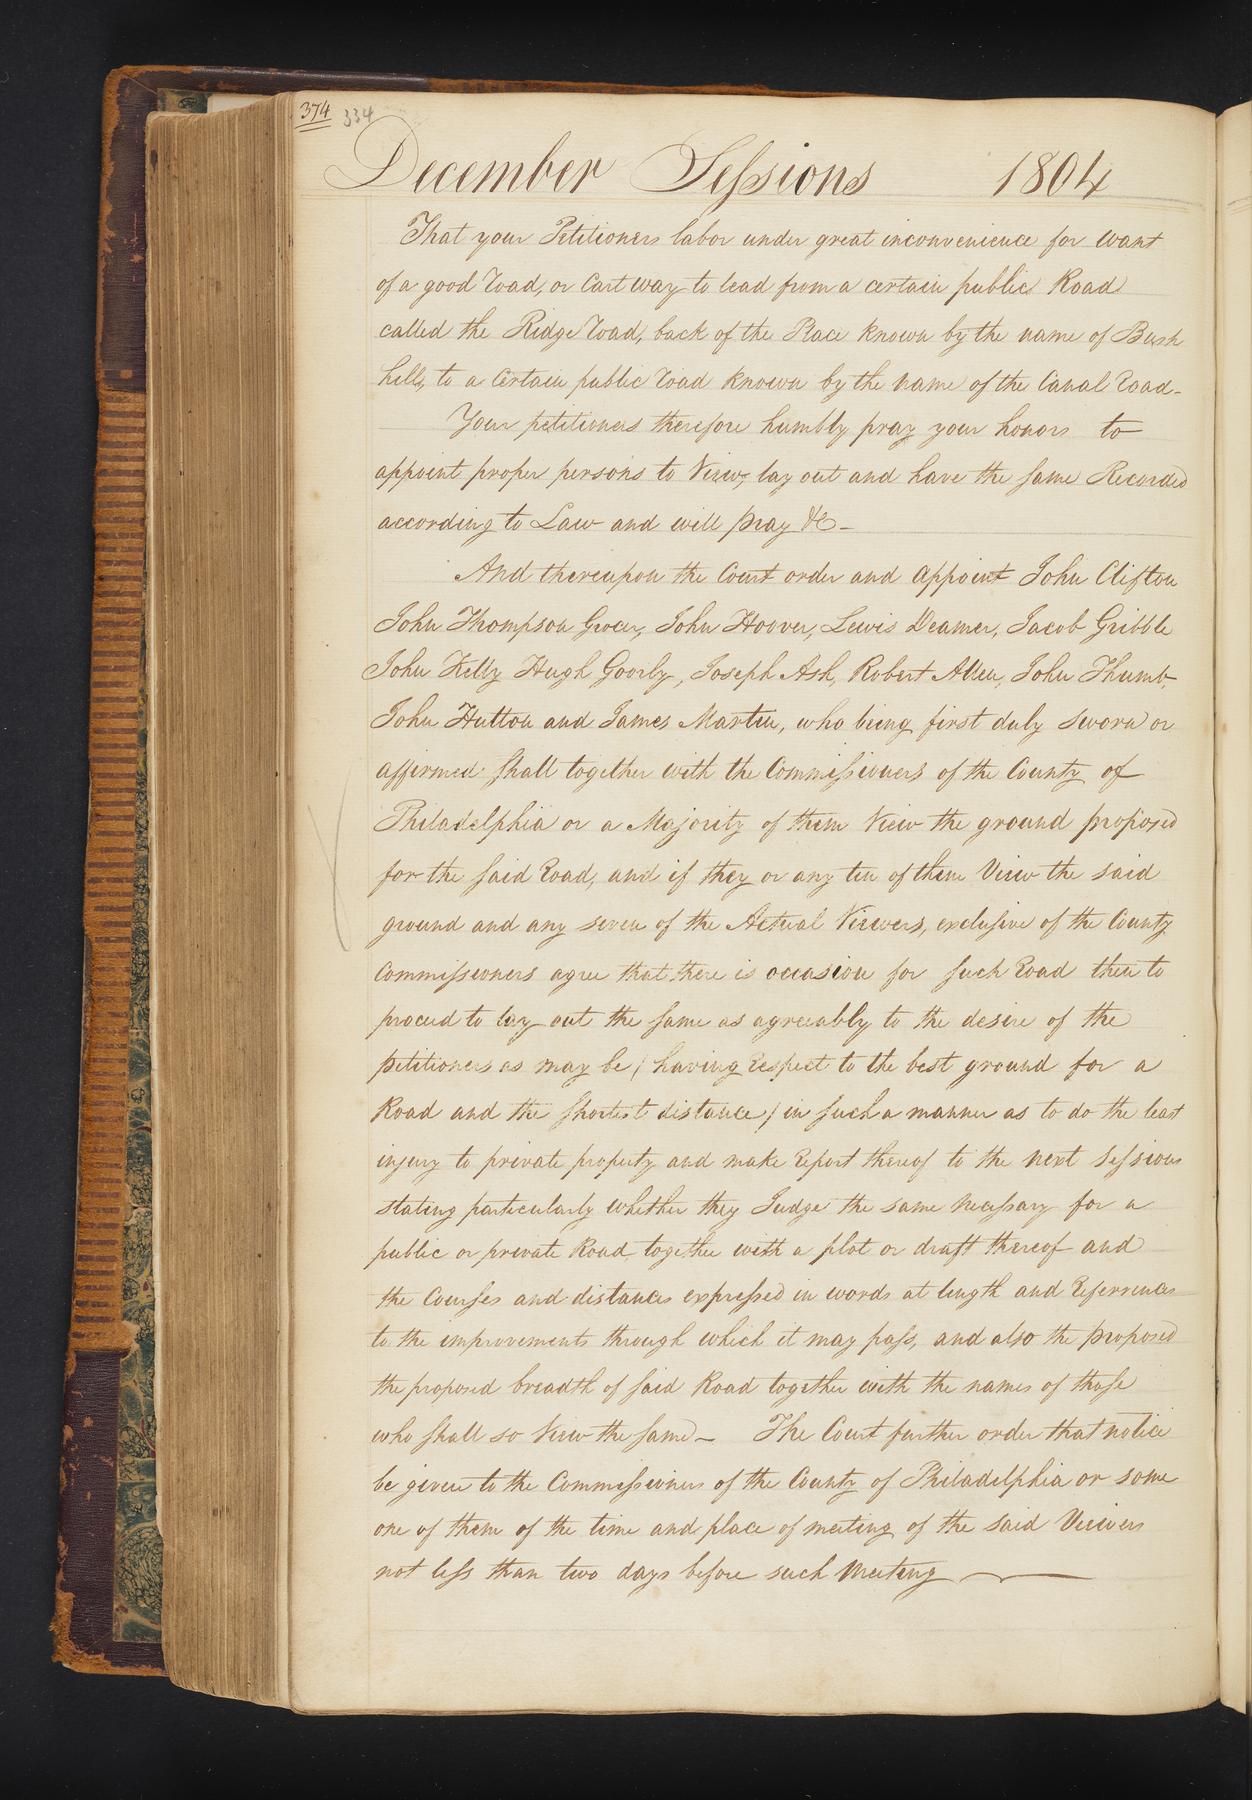 374 334
December Sessions 1804
That your Petitioners labor under great inconvenience for want
of a good Road, or Cart way to lead from a certain public Road
called the Ridge Road, back of the Place known by the name of Bush
hill, to a Certain public Road known by the name of the Canal Road-
Your petitioners therefore humbly pray your honors to
appoint proper persons to View, lay out and have the same Recorded
according to Law and will pray &c-
And thereupon the Court order and appoint John Clifton
John Thompson Grocer, John Hoover, Lewis Deamer, Jacob Gribble
John Kelly Hugh Goorly, Joseph Ash, Robert Allen, John Thumb,
John Hutton and James Martin, who being first duly sworn or
affirmed shall together with the Commissioners of the County of
Philadelphia or a Majority of them View the ground proposed
for the said Road, and if they or any ten of them View the said
ground and any seven of the Actual Viewers, exclusive of the County
Commissioners agree that there is occasion for such Road then to
proceed to lay out the same as agreeably to the desire of the
petitioners as may be, (having Respect to the best ground for a
Road and the shortest distance) in such a manner as to do the least
injury to private property and make Report thereof to the next Sessions
stating particularly whether they Judge the same necessary for a
public or private Road together with a plot or draft thereof and
the Courses and distances expressed in words at length and References
to the improvements through which it may pass, and also the proposed
the proposed breadth of said Road together with the names of those
who shall so View the same- The Court further order that notice
be given to the Commissioners of the County of Philadelphia or some
one of them of the time and place of meeting of the said Viewers
not less than two days before such Meeting